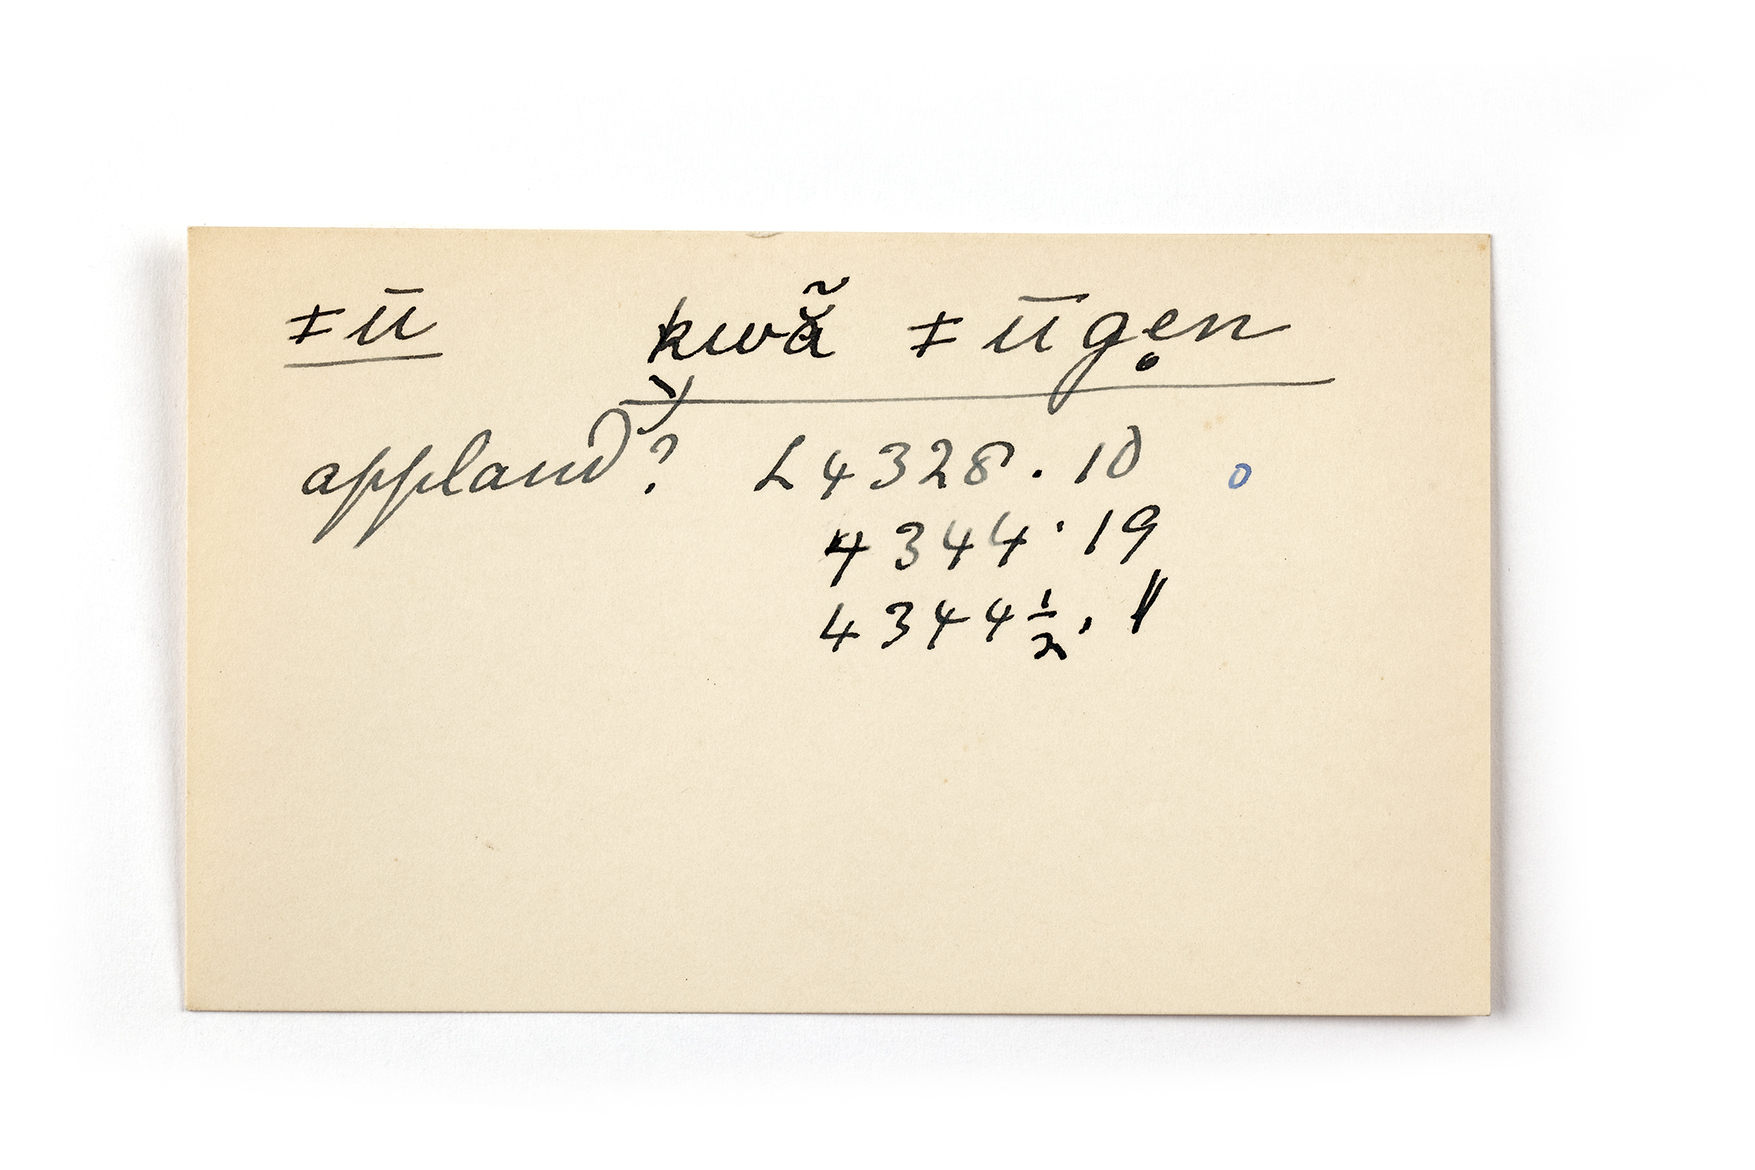 ǂū kwã ǂūge̥n
applaud? L4328.10 o
4344.19
4344½.1